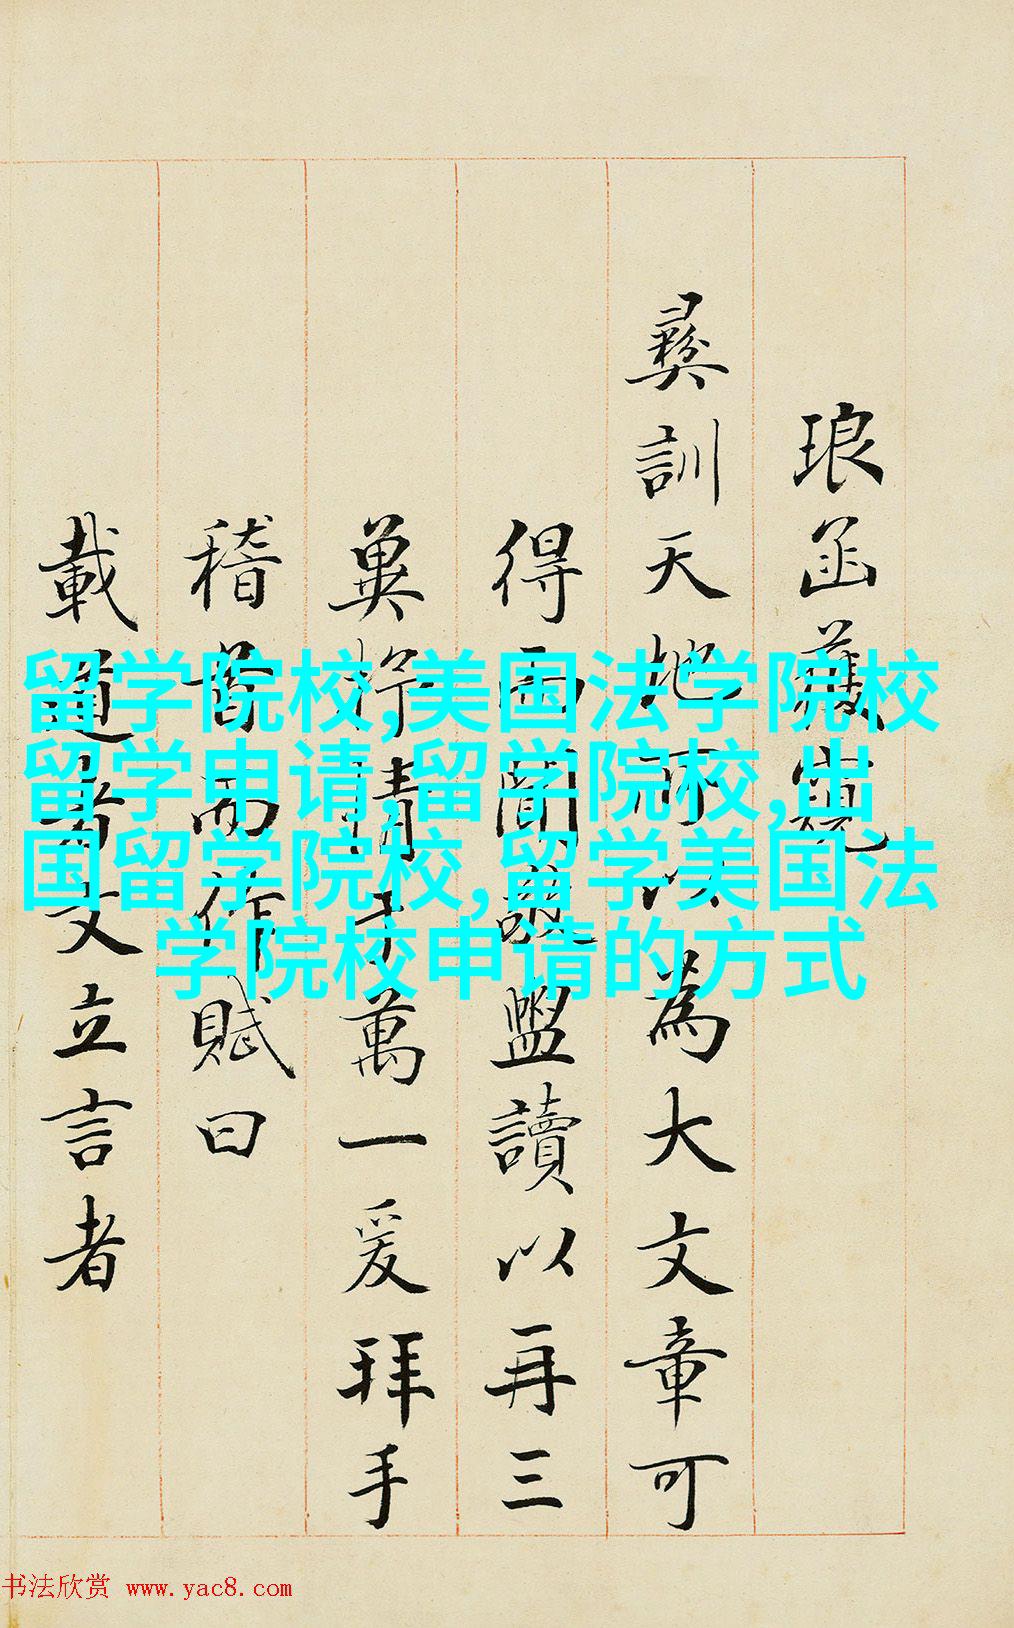 琅函藏寶
彝訓天地所以為大文章可
得而聞訊盥讀以再三
冀抒情于萬一爰拜手
稽首而作賦曰
載道者文立言者
留学院校,美国法学院校
留学申请,留学院校,出
国留学院校,留学美国法
学院校申请的方式
书法欣赏 www.yac8.com